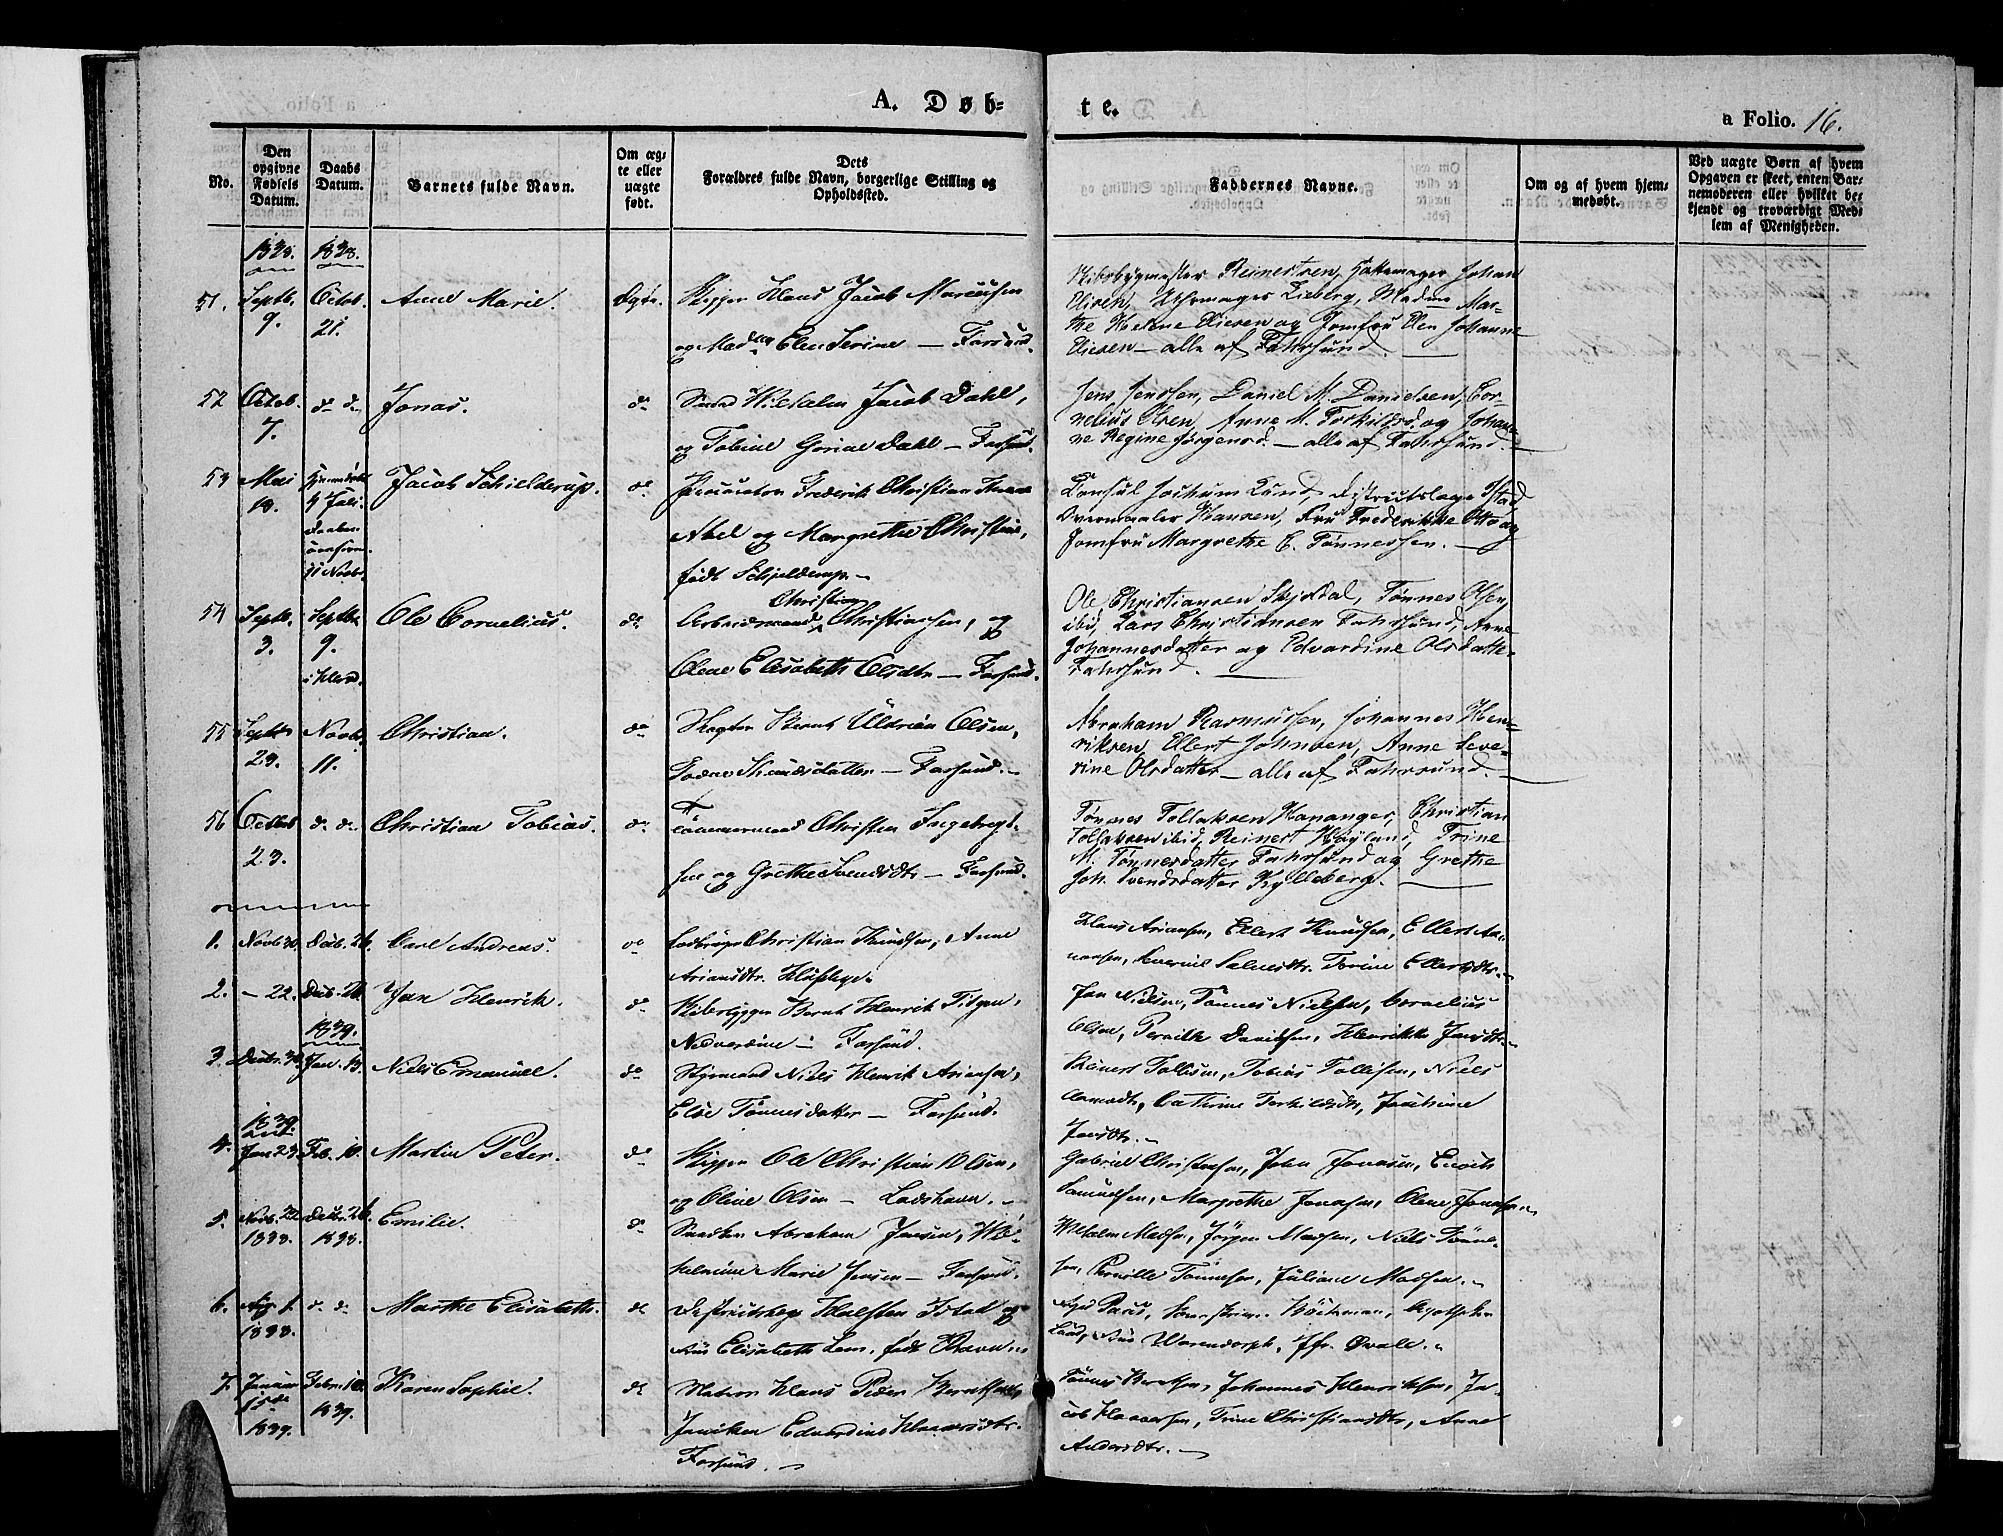 A. Døb-
te.
a Folio. 16.
No.
Den opgivne Fødsels Datum.
Daabs Datum.
Barnets fulde Navn.
Om ægte eller uægte født.
Dets Forældres fulde Navn, borgerlige Stilling og Opholdssted.
Faddernes Navne.
Om og af hvem hjemmedøbt.
Ved uægte Børn af hvem Opgaven er skeet, enten Barnemoderen eller hvilket bekjendt og troværdigt Medlem af Menigheden.
1838. 1838.
51. Septb. 9. Octob. 21. Anne Marie. Ægte. Skipper Hans Jacob Marcusen
og Madam Elen Serine — Farsund.
Reinertsen, Hattemager Johan
Eliesen, Uhrmager Lieberg, Madme Mar-
the Helene Eliesen og Jomfru Elen Johanne
Eliesen — alle af Fahrsund.
52 Octob. 7. do do Jonas. do Smed Wilhelm Jacob Dahl,
og Tobine Gurine Dahl — Farsund.
Jens Jenssen, Daniel M. Danielsen, Cor-
nelius Olsen, Anne M. Torkildsd. og Johan-
ne Regine Jørgensd. — alle af Fahrsund.
53 Mai 18. Hjemmedøbt 4 Juli 11 Novb. Jacob Schielderup. do Procurator Frederik Christian
Abel og Margrethe Christine,
født Schjelderup. —
Consul Jochum Lund, Districtslæge Istad,
Overmaaler Hansen, Fru Frederikke Otto og
Jomfru Margrethe C. Tønnessen. —
54 Septb. 3. Septbr. 9. Ole Cornelius. do Arbeidsmand Christian Christiansen, og
Olene Elisabeth Olsdtr — Farsund.
Ole Christiansen Skjoldal, Tønnes Olsen
ibid, Lars Christiansen Fahrsund, Anne
Johannesdatter og Edvardine Olsdatter
Fahrsund. —
55 Septb. 23. Novb. 11. Christian. do Bernt Uldrian Olsen,
— Farsund. —
Abraham Rasmussen, Johannes Hen-
riksen, Ellert Johnsen, Anne Seve-
rine Olsdatter — alle af Fahrsund. —
56 Octob. 23. do do Christian Tobias. do Tømmermand Christen Ingebregt-
sen og Grethe Svendsdtr — Farsund.
Tønnes Tollaksen Hananger, Christian
Tollaksen ibid, Reinert Høyland, Trine
M. Tønnesdatter Fahrsund og Grethe
Joh. Svendsdatter Kylleberg. —
1. Novb 30. Decb. 26. Carl Andreas do Christian Knudsen, Anne
Ariansdtr.
Hans Ariansen, Ellert Knudsen, Ellert An-
Ellertsdtr. —
2. — 22. Decb. 26. Jan Henrik. do Bernt Henrik
— Farsund.
Jan Nielsen, Tønnes Nielsen, Cornelius
Olsen, Pernille Davidsen, Henrikke Jansdtr. —
1839.
3. Decbr. 30. Jan. 13. Niels Emanuel. do Styrmand Niels Henrik Ariansen,
Else Tønnesdatter — Farsund.
Reinert Tollisen, Tobias Tollisen, Niels
Cathrine Torkildsdtr, Jochime
Jansdtr. —
1839.
4. Jan 23. Feb. 10. Martin Peter. do Skipper Ole Christian Olsen,
og Oline Olsen — Loshavn. —
Gabriel Christensen, John Jonassen, Enoch
Samuelsen, Margrethe Jonassen, Olene Jonassen
5. Novb. 22. 1838. Decbr. 26. 1838. Emilie. do Snedker Abraham Jensen, Wil-
helmine Marie Jensen — Farsund.
Wilhelm Madsen, Jørgen Madsen, Niels Tønne-
sen, Pernille Tønnesen, Juliane Madsen. —
6. Aug. 1. 1838. do do Marthe Elisabeth. do Districtslæge Halsten Istad og
Fru Elisabeth født Ravn. —
Apotheker
Lund, Fru Warendorph, Jfr. Qvale. —
7. Januar 15de 1839. Febr. 10. 1839. Karen Sophie. do Matros Hans Peder Berntsen,
Farsund. —
Tønnes Berntsen, Johannes Henriksen, Ja-
cob Trine Christiansdtr, Anne
Andersdtr. —